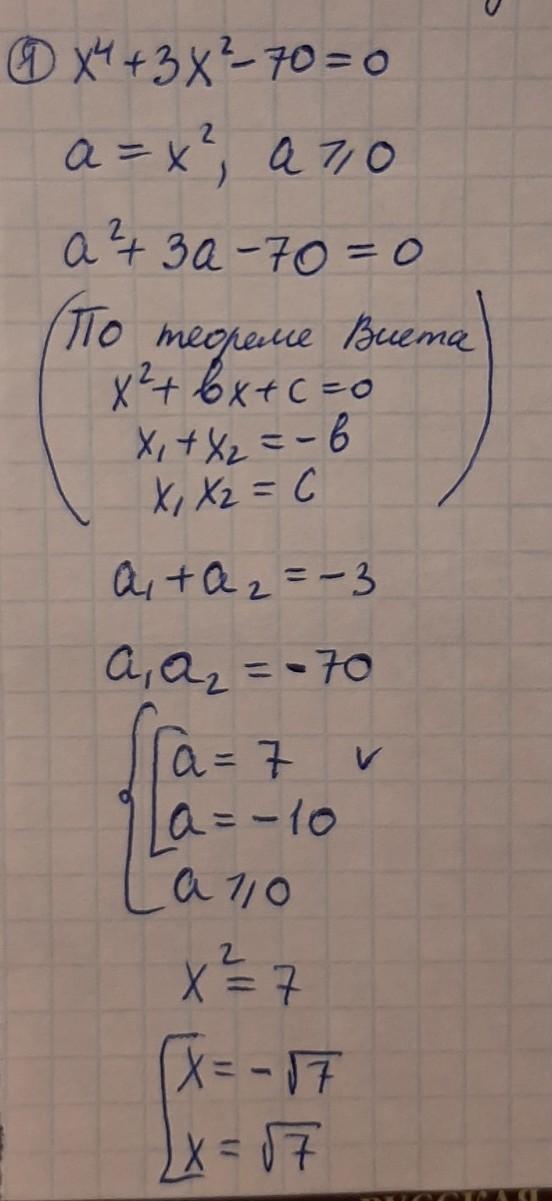 ① x⁴ + 3x² - 70 = 0
a = x², a ⩾ 0
a² + 3a - 70 = 0
(По теореме Виета
x² + вx + c = 0
x₁ + x₂ = - в
x₁ x₂ = c)
a₁ + a₂ = - 3
a₁ a₂ = - 70
{ [ a = 7 v
a = - 10
a ⩾ 0
x² = 7
[ x = - √7
x = √7